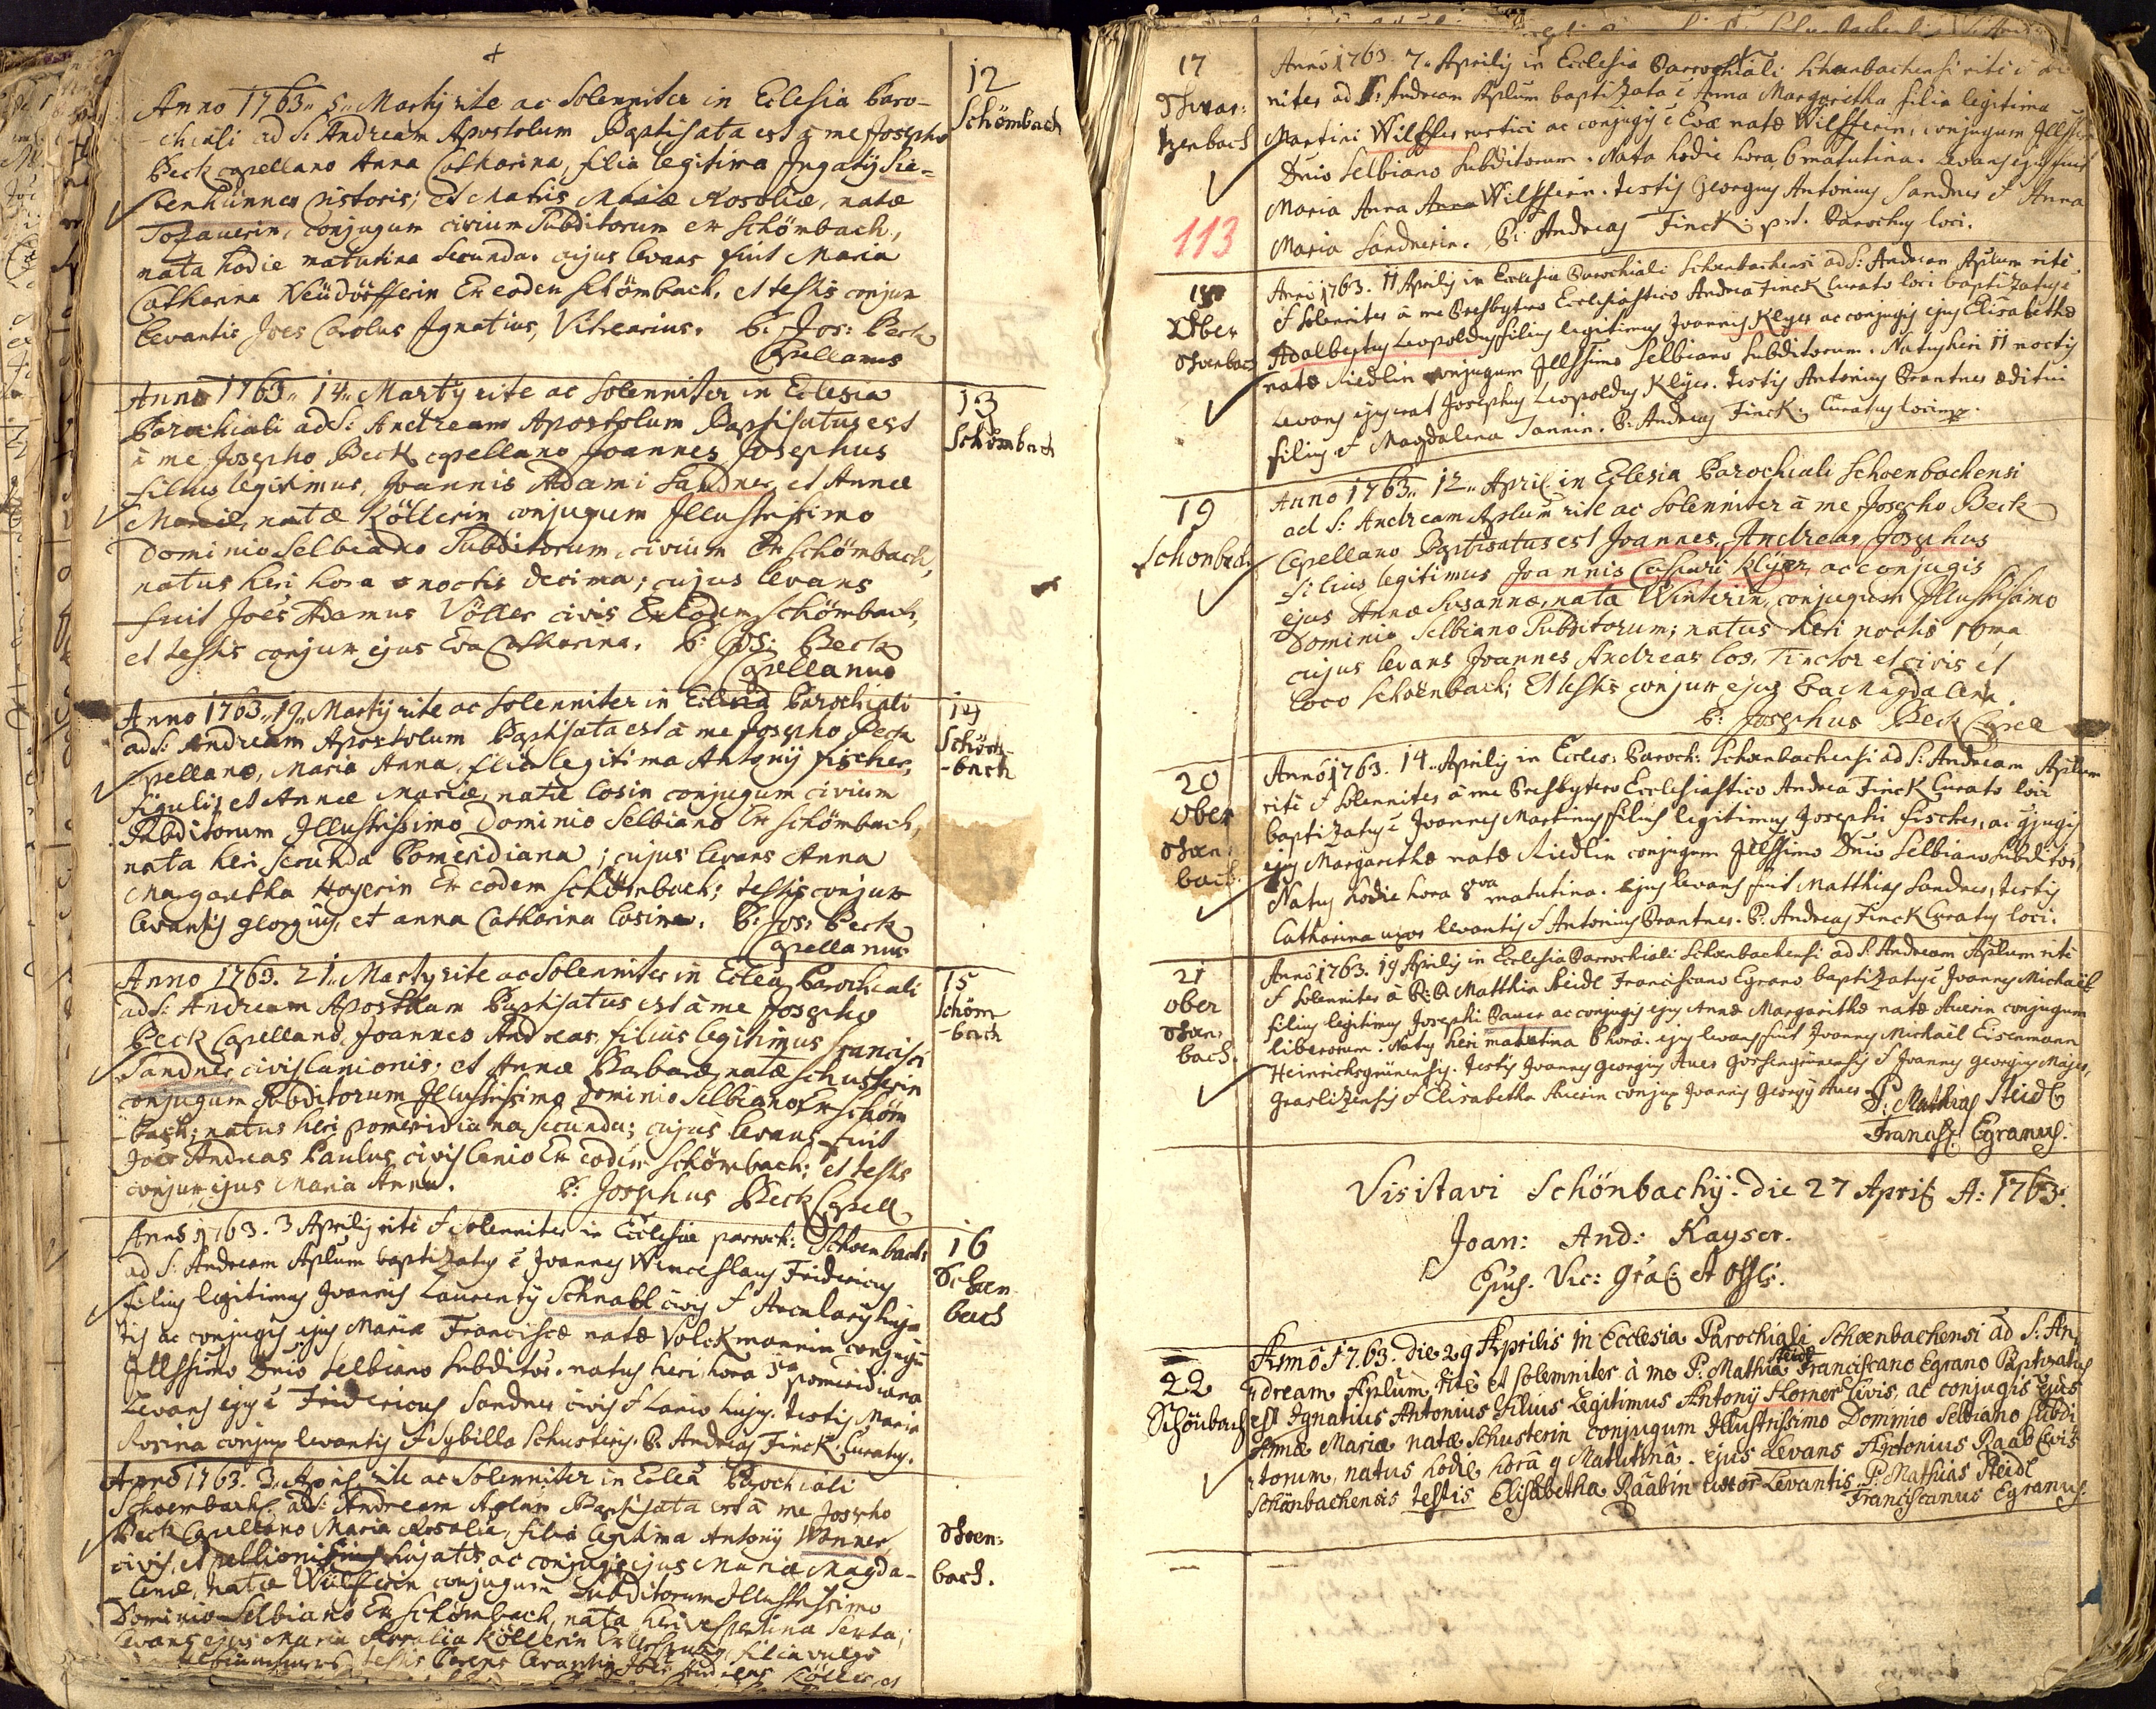 Anno 1763.. 5.. Martij rite ac Solenniter in Eclesia Paro-
12
Schömbach
-chiali ad S: Andream Apostolum Baptisata est à me Josepho
Beck capellano Anna Catharina, filia legitima Ignatij Sie-
benhünner pistoris; et Matris Mariæ Rosoliæ, natæ
conjugum civium Subditorum ex Schömbach,
nata hodie matutina secunda. cujus levans fuit Maria
Catharina Neüdörfferin Ex eodem Schömbach, et testis conjux
levantis Joês Carolus Ignatius, Vitrearius. P: Jos: Beck
Capellanus
Anno 1763.. 14.. Martij rite ac Solenniter in Eclesia
13
Schömbach
Parochiali ad S: Andream Apostolum Baptisatus est
à me Josepho Beck capellano Joannes Josephus
filius legitimus, Joannis Adami Sandner, et Annæ
Mariæ, natæ Köllerin conjugum Illustrissimo
Dominio Selbiano Subditorum, civium Ex Schömbach,
natus heri hora noctis decima; cujus levans
fuit Joês Adamus Völler civis Ex eodem Schömbach,
et testis conjux ejus Eva Catharina. P: Jos: Beck
Capellanus
Anno 1763.. 19.. Martij rite ac Solenniter in Eclesia Parochiali
14
Schöm-
-bach
ad S: Andream Apostolum Baptisata est à me Josepho Beck
Capellano, Maria Anna, filia legitima Antonij Fischer,
figuli, et Annæ Mariæ, natæ Losin conjugum civium
Subditorum Illustrissimo Dominio Selbiano Ex Schömbach,
nata heri secunda Pomeridiana; cujus levans Anna
Margaretha Hoyerin Ex eodem Schömbach; testis conjux
levantis georgius, et anna Catharina Losin. P: Jos: Beck
Capellanus
Anno 1763. 21.. Martij rite ac Solenniter in Eclea Parochiali
15
Schöm
-bach
ad S: Andream Apostolum Baptisatus est à me Josepho
Beck Capellano, Joannes Andreas, filius legitimus Francisci
Sandner civis Lanionis; et Annæ Barbaræ, natæ Schusterin
conjugum Subditorum Illustrissimo Dominio Selbiano Ex Schöm
-bach; natus heri pomeridiana secunda; cujus levans fuit
Joês Andreas Paulus civis Ex eodem Schömbach; et testis
conjux ejus Maria Anna. P: Josephus Beck Capell
Anno 1763. 3 Aprilis rite & solenniter in Ecclesia paroch: Schoenbach:
16
Schoen
bach
ad S: Andream Aplum baptizatus ê Joannes Wenceslaus Fridericus
filius legitimus Joannis Laurentij Schnabl civis & Arcularij huja
tis ac conjugis ejus Mariæ Franciscæ natæ Volckmannin conjugu
Illssimo Dnio Selbiano Subditor: natus heri hora 3 pomeridiana
Levans ejus ê Fridericus Sandner civis & Lanio hujus. testis Maria
Rosina conjux levantis & Sybilla Schusterin. P. Andreas Finck Curatus.
Anno 1763. 3.. April. rite ac Solenniter in Eclea Parochiali
Schoen-
bach.
Schoenbach: ad S: Andream Aplum Baptisata est à me Josepho
Beck Capellano Maria Rosalia, filia legitima Antonij Wonner
civis, et pellionis hujatis ac conjugis ejus Mariæ Magda-
lenæ, natæ Wilfferin conjugum Subditorum Illustrissimo
Dominio Selbiano Ex Schömbach, nata heri vespertina sexta;
Levans ejus Maria Rosalia Köllerin filia
testis Levantis Joês Köller, et
17
Schoen-
bach
113
Anno 1763. 7. Aprilis in Ecclesia Parrochiali Schoenbachensi rite &
niter ad S: Andream Aplum baptizata ê Anna Margaritha filia legitima
Martini Wilffer rustici ac conjugis ê Evæ natæ Wilfferin, conjugum Illssimo
Dnio Selbiano Subditorum. Nata hodie hora 6 matutina. Levans ejus fuit
Maria Anna Wilfferin. testis Georgius Antonius Sandner & Anna
Maria Sandnerin. P: Andreas Finck p.t. Parochus loci.
18
Ober
Schoenbach
Anno 1763. 11 Aprilis in Ecclesia Parochiali Schoenbachensi ad S: Andream Aplum rite
& solenniter à me Presbytero Ecclesiastico Andrea Finck Curato loci baptizatus ê
Adalbertus Leopoldus filius legitimus Joannis Klyer ac conjugis ejus Elisabethæ
natæ Riedlin conjugum Illssimo Selbiano Subditorum. Natus heri 11 noctis
Levans ejus erat Josephus Leopoldus Klyer. testis Antonius Brantner æditui
filius & Magdalena Tannin. P: Andreas Finck Curatus loci mp.
19
Schönbach
Anno 1763.. 12.. April. in Eclesia Parochiali Schoenbachensi
ad S: Andream Aplum rite ac Solenniter à me Josepho Beck
Capellano Baptisatus est Joannes, Andreas, Josephus
filius legitimus Joannis Caspari Klyer, ac conjugis
ejus Annæ Susannæ, nata Winterin, conjugum Illustrissimo
Dominio Selbiano Subditorum; natus heri noctis 10ma
cujus levans Joannes Andreas Los, Tinctor et civis ex
loco Schoenbach; Et testis conjux ejus Eva Magdalena.
P: Josephus Beck Capell
20
Ober
Schoen-
bach.
Anno 1763. 14. Aprilis in Eccles: Paroch: Schoenbachensi ad S: Andream Aplum
rite & solenniter à me Presbytero Ecclesiastico Andrea Finck Curato loci
baptizatus ê Joannes Martinus filius legitimus Josephi Fischer, ac cjugis
ejus Margarithæ natæ Riedlin conjugum Illssimo Dnio Selbiano Subditor.
Natus hodie hora 8va matutina. ejus levans fuit Matthias Sandner, testis
Catharina uxor levantis & Antonius Brantner. P: Andreas Finck Curatus loci.
21
ober
Schoen-
bach.
Anno 1763. 19 Aprilis in Ecclesia Parrochiali Schoenbachensi ad S: Andream Aplum rite
& solenniter à R: P. Matthia Steidl Franciscano Egrano baptizatus ê Joannes Michaël
filius legitimus Josephi Bauer ac conjugis ejus Annæ Margarithæ natæ Auerin conjugum
liberorum. Natus heri matutina 6 horâ. ejus levans fuit Joannes Michaël Eisenmann
Heinrichsgrünensis. testis Joannes Georgius Auer Gossengrünensis & Joannes Georgius Majer,
Graslizensis & Elisabetha Auerin conjux Joannis Georgij Auer P: Mathias Steidl
Francisc: Egranus.
Visitavi Schönbachij die 27 April. A: 1763.
Joan: And: Kayser.
Epus. Vic: Gral: et Offlis.
22
Schönbach
Anno 1763. die 29 Aprilis in Ecclesia Parochiali Schoenbachensi ad S: An-
dream Aplum, rite et solemniter à me P: Mathia Steidl Franciscano Egrano Baptizatus
est Ignatius Antonius Filius Legitimus Antonij Horner Civis, ac conjugis ejus
Annæ Mariæ natæ Schusterin conjugum Illustrissimo Dominio Selbiano Subdi
torum, natus hodie horâ 9 Matutinâ. ejus Levans Antonius Raab Civis
Schönbachensis testis Elisabetha Raabin uxor Levantis P: Mathias Steidl
Franciscanus Egranus.